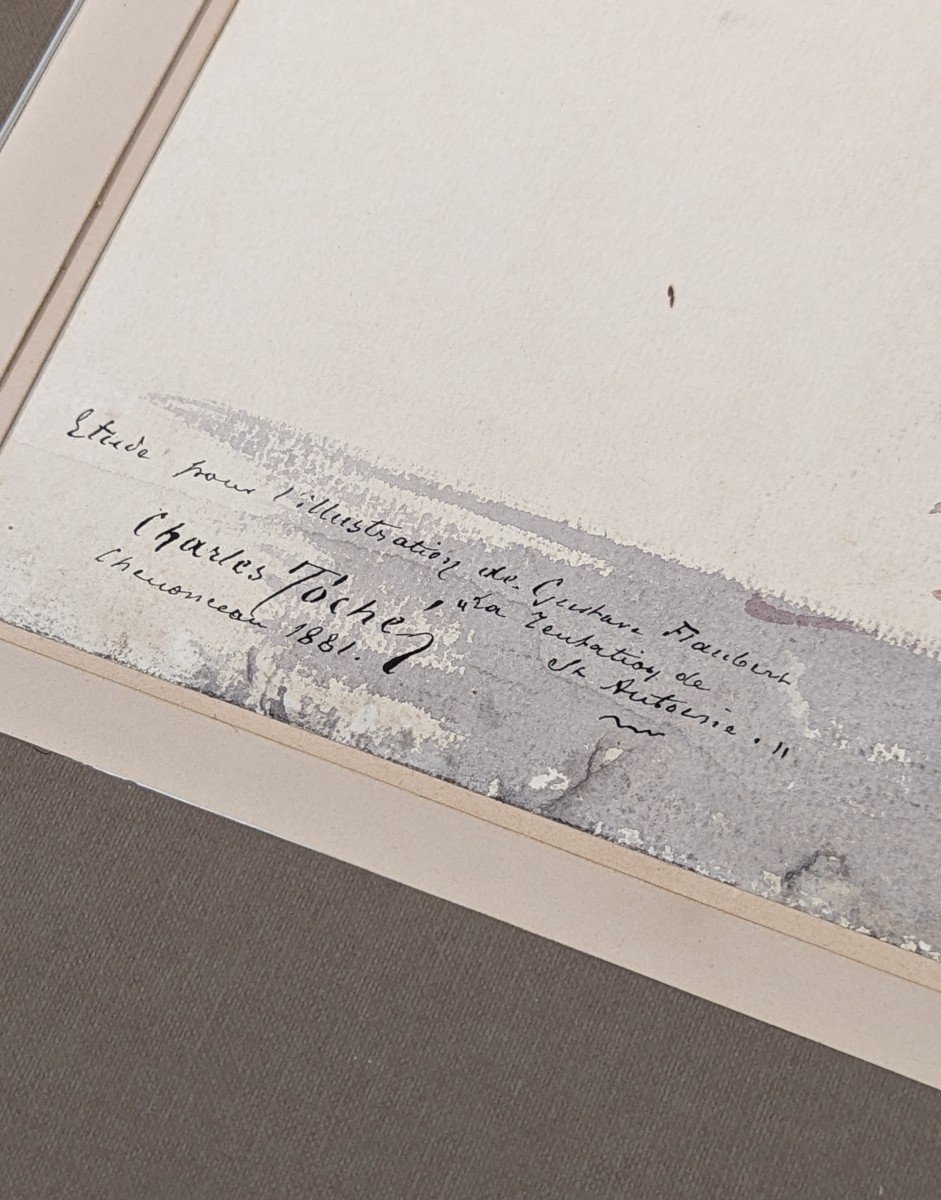 Etude pour l'illustration de Gustave Flaubert
"La Tentation de
St Antoine."
Charles Toché
Chenonceau 1881.